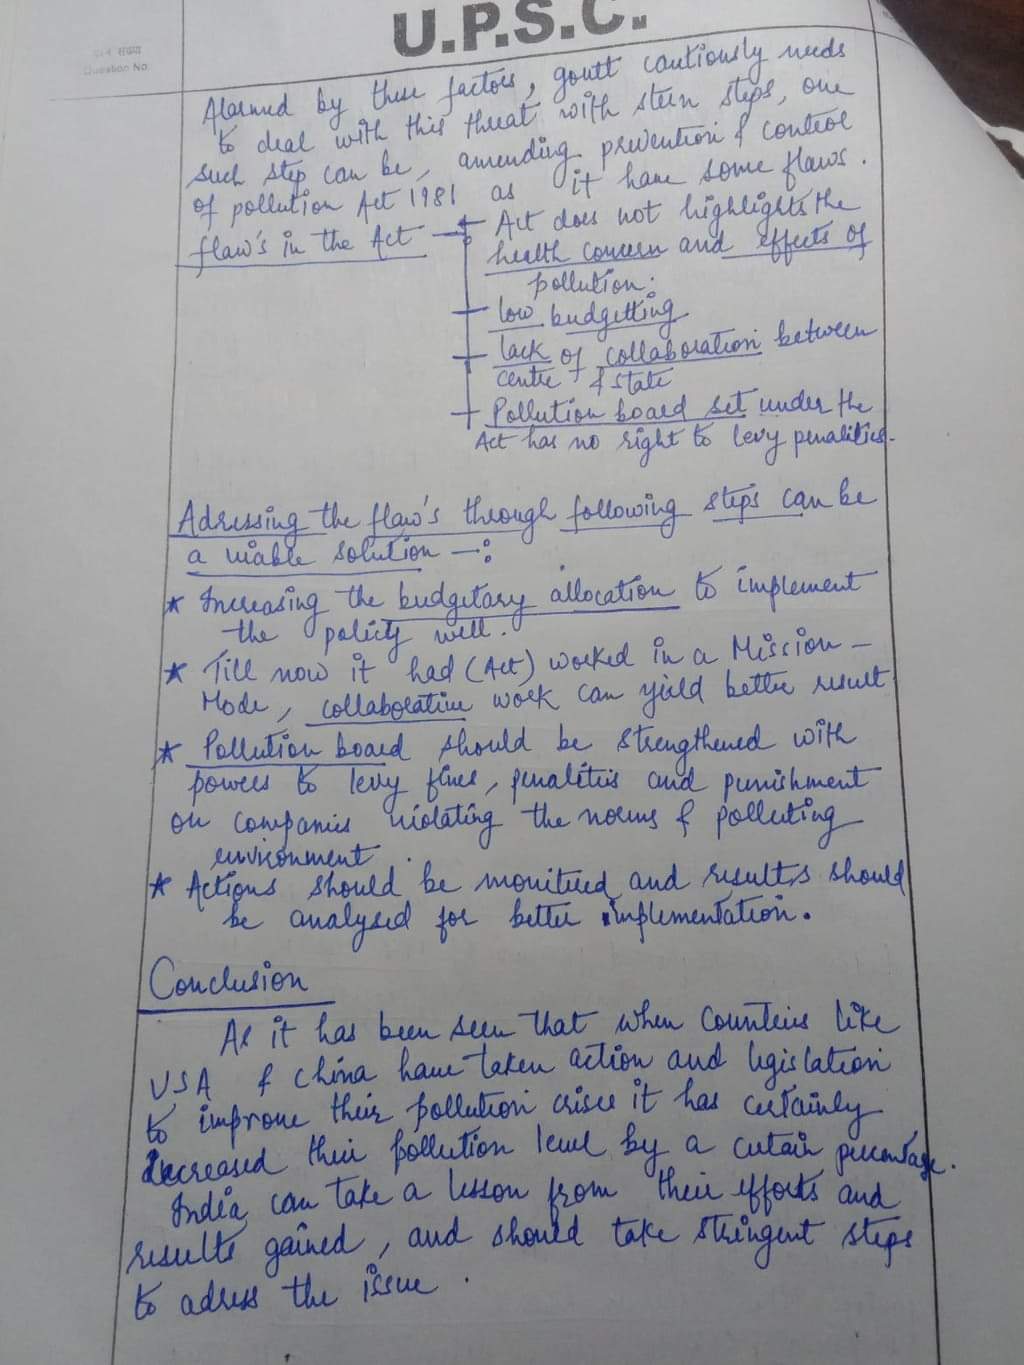 U.P.S.C.
Question No.
Alarmed by these factors, goutt cautiously needs
to deal with this threat with stern steps, one
such step can be, amending prevention & control
of pollution Act 1981 as it have some flaws.
flaw's in the Act → Act does not highlights the
health concern and effects of
pollution.
low budgetting
lack of collaboration between
centre & state
Pollution board set under the
Act has no right to levy penalities.
Adressing the flaw's through following steps can be
a viable solution —:
* Increasing the budgetary allocation to implement
the policy well.
* Till now it had (Act) worked in a Mission -
Mode, collaborative work can yield better result
* Pollution board should be strengthened with
powers to levy fines, penalities and punishment
on companies violating the norms & polluting
environment.
* Actions should be monitired and results should
be analysed for better implementation.
Conclusion
As it has been seen that when Countries like
USA & China have taken action and legislation
to improve their pollution crisis it has certainly
decreased their pollution level by a certain percentage.
India can take a lesson from their efforts and
results gained, and should take stringent steps
to adress the issue.